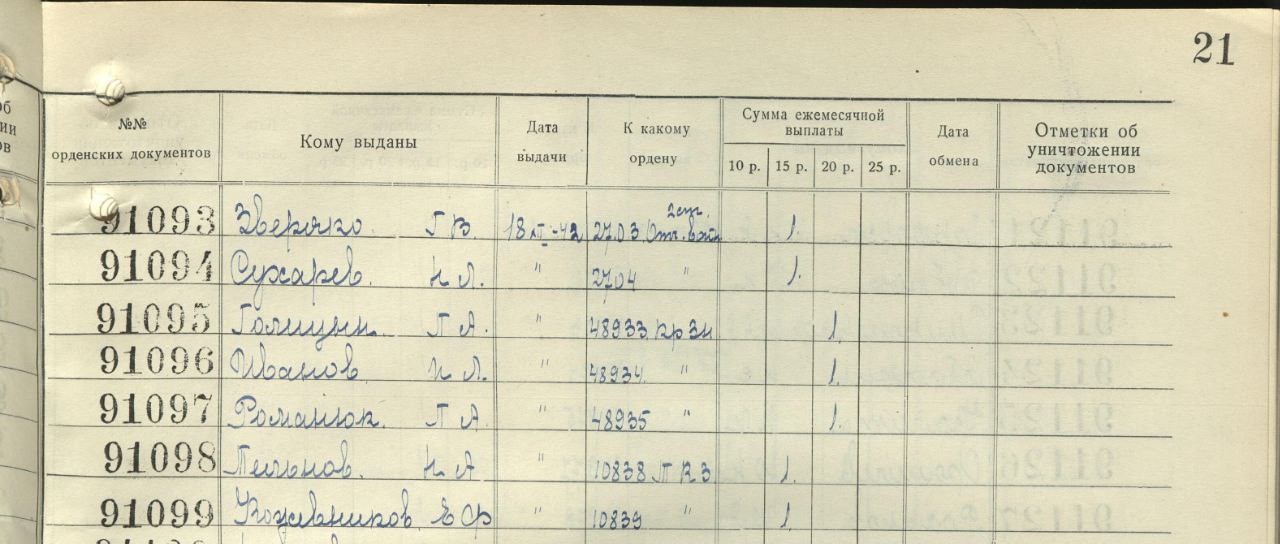 21
об
ии
ов
№№ орденских документов Кому выданы Дата выдачи К какому ордену Сумма ежемесячной выплаты Дата обмена Отметки об уничтожении документов
10 р. 15 р. 20 р. 25 р.
2 ст.
91093 Зверяко Г В. 18 XI-42 2703 Отч. войн 1.
91094 Сухарев. Н Л. " 2704 " 1.
91095 Голицын П А. " 48933 Кр Зн 1.
91096 Иванов. И Л. " 48934 " 1.
91097 Романюк. П А. " 48935 " 1
91098 Н А " 10838 П КЗ 1.
91099 Кожевников Е Ф " 10839 " 1.